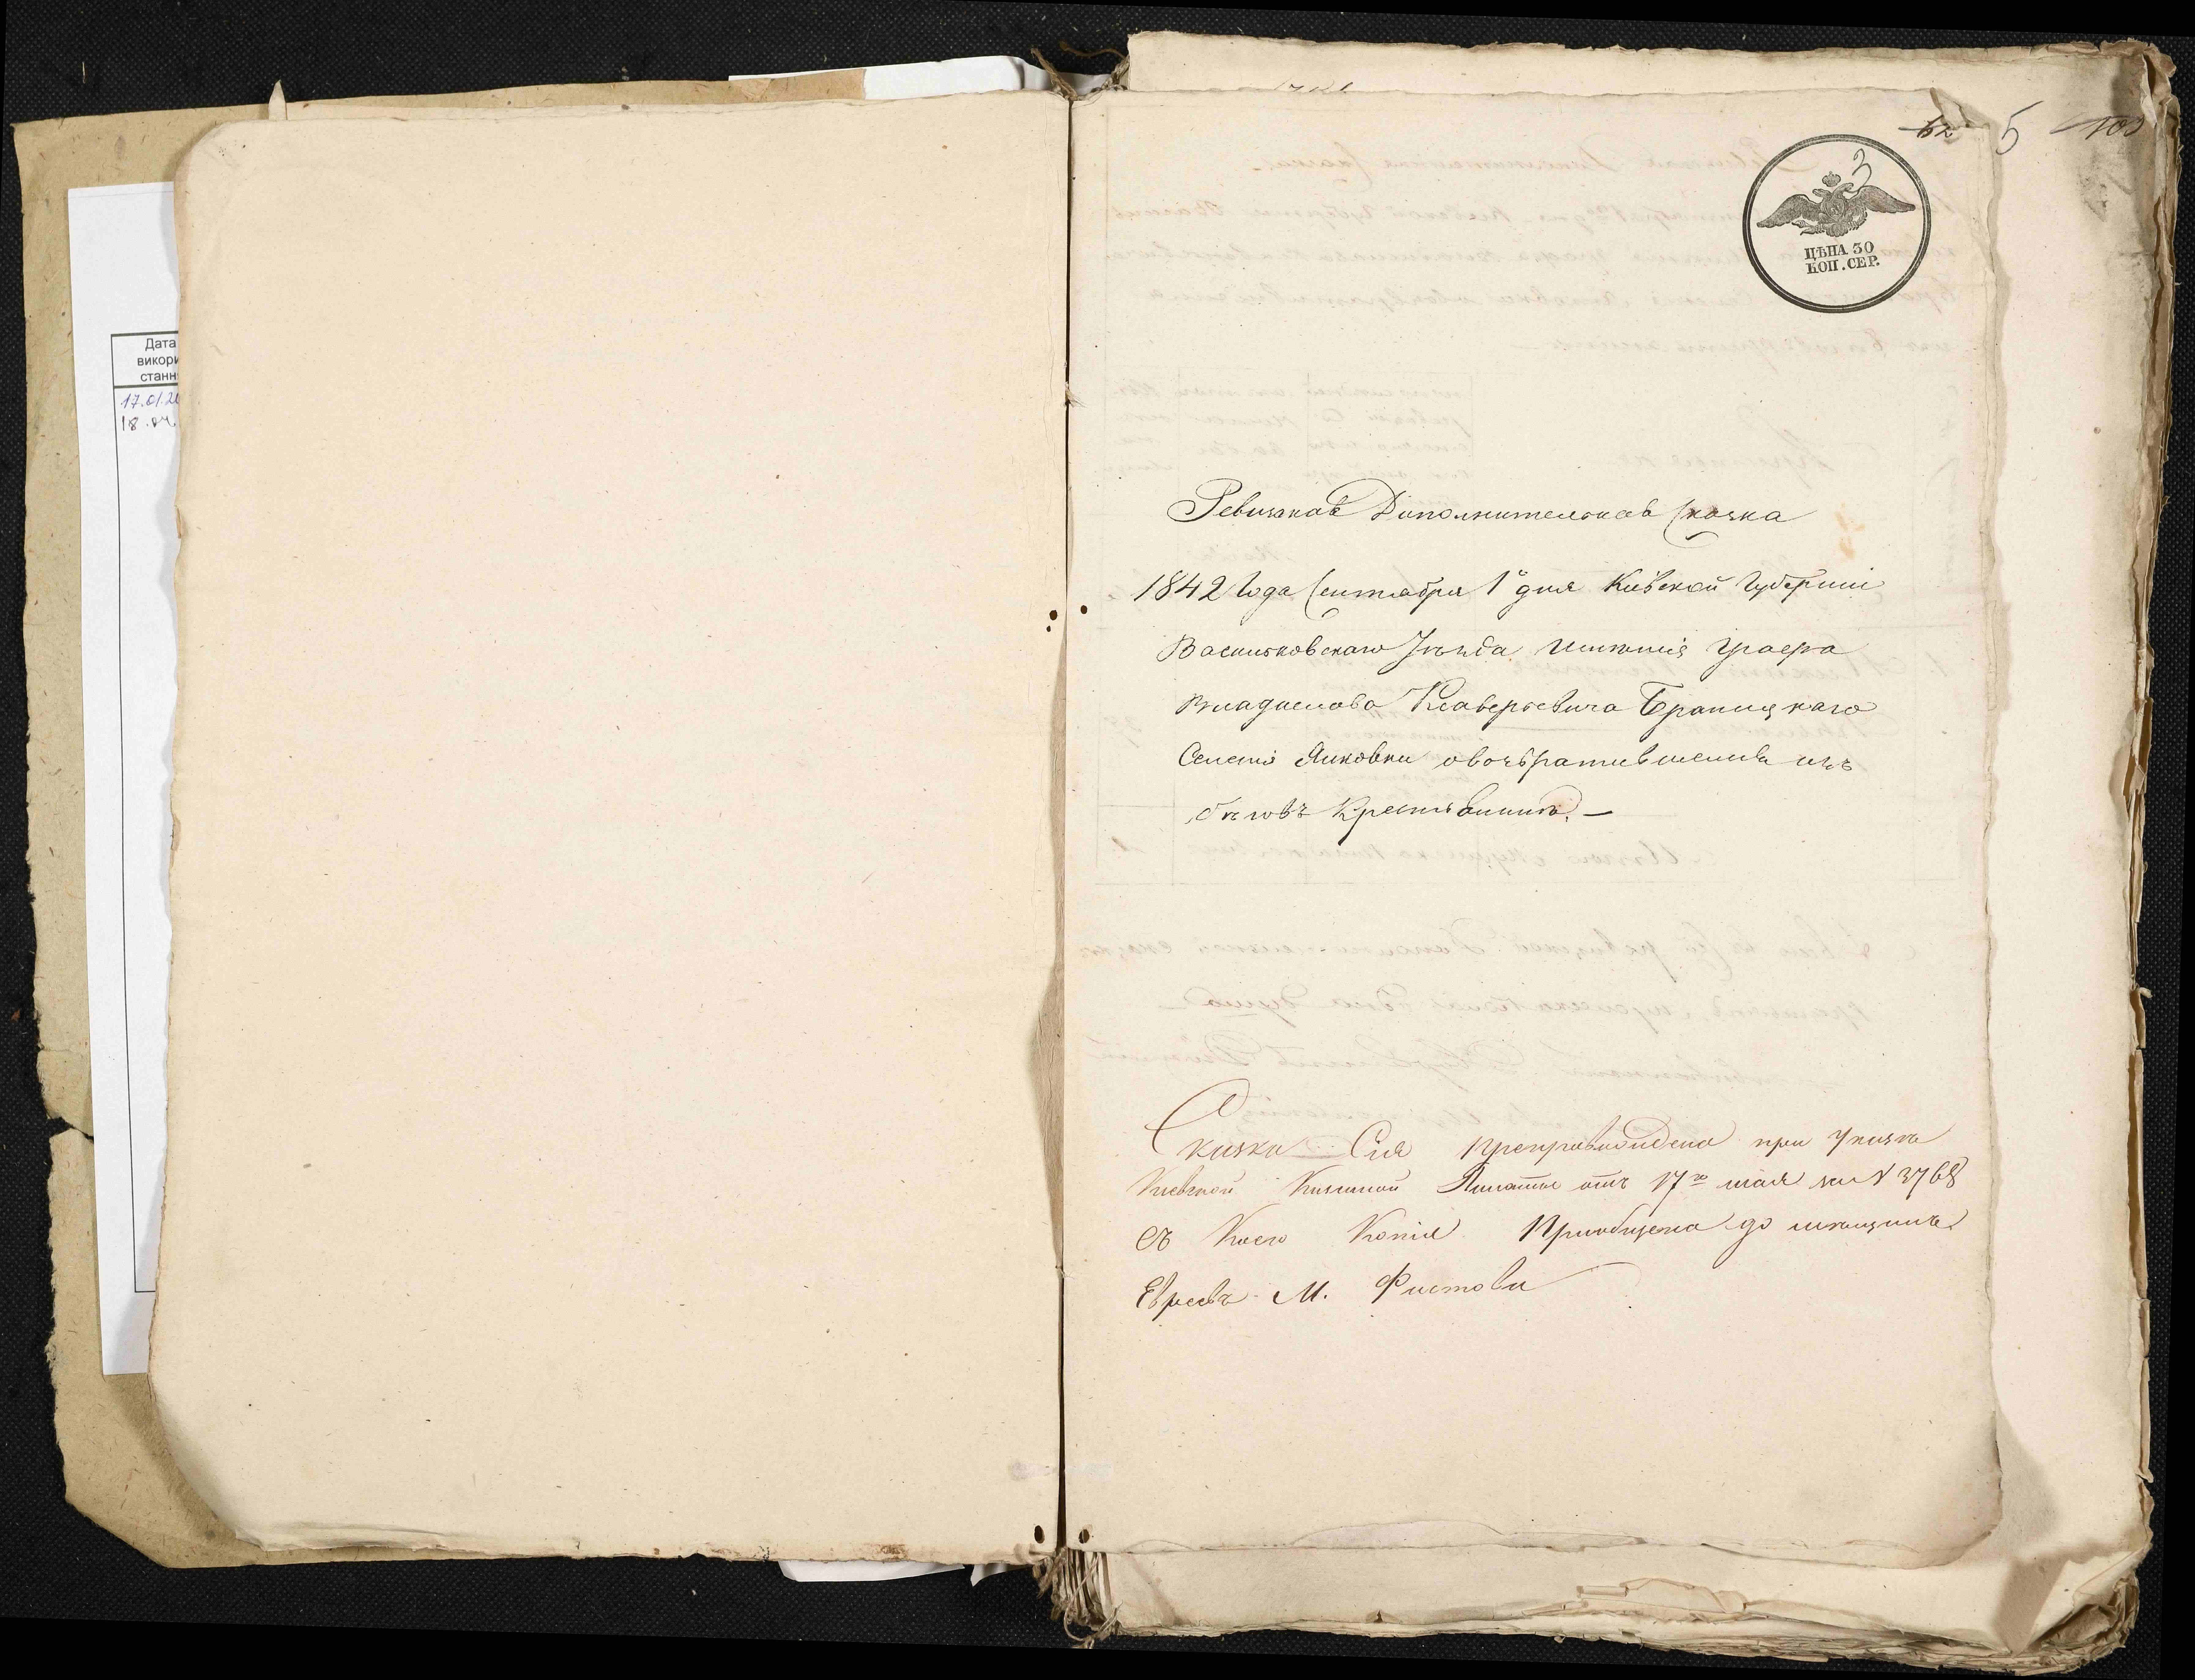 Дата
викори
станн
17.01.20
18.04.
62 5 103
3
ЦѢНА 30
КОП. СЕР.
Ревизкаѣ Дополнительнаѣ Сказка
1842 Года Сентября 1º дня Кіевской Губерніи
Васильковскаго Уѣзда имѣнія Графа
Владислава Ксаверьевича Браницкаго
Селенія Янковки овозвратившемся изъ
бѣговъ Крестьянинѣ. —
Сказка Сія Препровождена при Указѣ
Кіевской Казенной Палаты отъ 17го мая за N 3768
съ Коего Копія Пріобщена до
Евреевъ М. Фастова